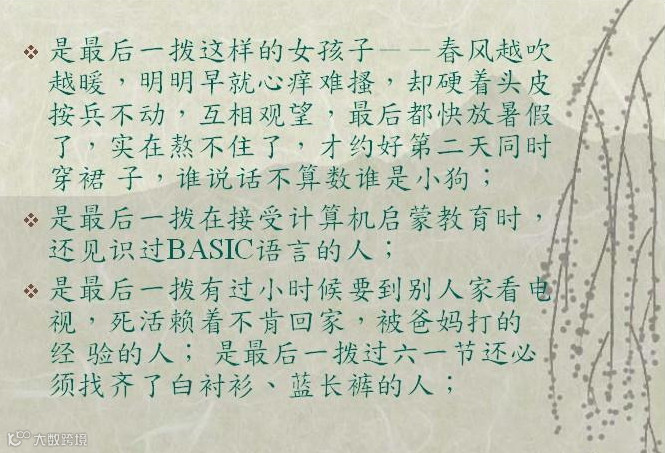 是最后一拨这样的女孩子——春风越吹
越暖，明明早就心痒难搔，却硬着头皮
按兵不动，互相观望，最后都快放暑假
了，实在熬不住了，才约好第二天同时
穿裙 子，谁说话不算数谁是小狗；
是最后一拨在接受计算机启蒙教育时，
还见识过BASIC语言的人；
是最后一拨有过小时候要到别人家看电
视，死活赖着不肯回家，被爸妈打的
经 验的人； 是最后一拨过六一节还必
须找齐了白衬衫、蓝长裤的人；
大数跨境